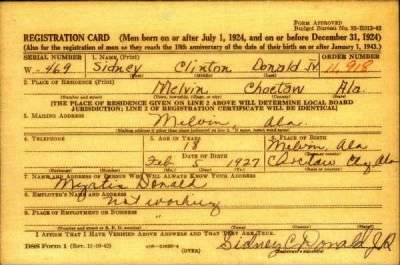 FORM APPROVED
Budget Bureau No. 33-R012-42
REGISTRATION CARD—(Men born on or after July 1, 1924, and on or before December 31, 1924)
(Also for the registration of men as they reach the 18th anniversary of the date of their birth on or after January 1, 1943.)
SERIAL NUMBER 1. NAME (Print) ORDER NUMBER
W-469 Sidney Clinton Donald Jr. 11,918
(First) (Middle) (Last)
2. PLACE OF RESIDENCE (Print)
Melvin Choctaw Ala.
(Number and street) (Town, township, village, or city) (County) (State)
[THE PLACE OF RESIDENCE GIVEN ON LINE 2 ABOVE WILL DETERMINE LOCAL BOARD
JURISDICTION; LINE 2 OF REGISTRATION CERTIFICATE WILL BE IDENTICAL]
3. MAILING ADDRESS
Melvin, Ala.
[Mailing address if other than place indicated on line 2. If same, insert word same]
4. TELEPHONE 5. AGE IN YEARS 6. PLACE OF BIRTH
18 Melvin, Ala
DATE OF BIRTH
Feb 5 1927 Choctaw Ala
(Exchange) (Number) (Mo.) (Day) (Yr.) (State or country)
7. NAME AND ADDRESS OF PERSON WHO WILL ALWAYS KNOW YOUR ADDRESS
Myrtis Donald
8. EMPLOYER'S NAME AND ADDRESS
not working
9. PLACE OF EMPLOYMENT OR BUSINESS
(Number and street or R. F. D. number) (Town) (County) (State)
I AFFIRM THAT I HAVE VERIFIED ABOVE ANSWERS AND THAT THEY ARE TRUE.
DSS Form 1 (Rev. 11-16-42) (OVER) Sidney C. Donald JR